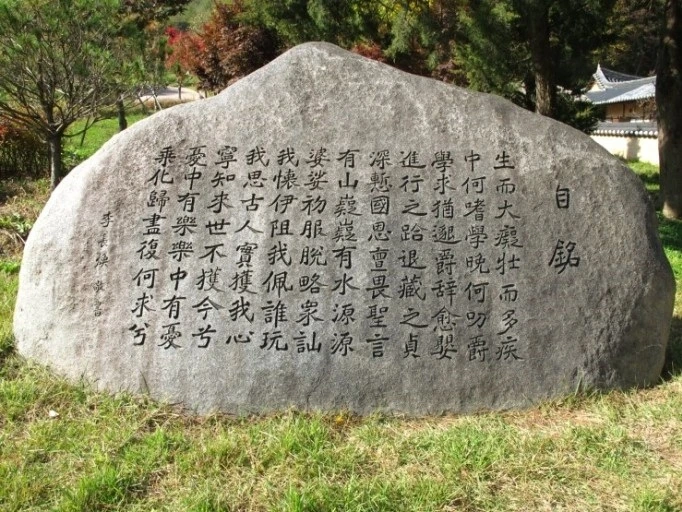 自銘
生而大癡壯而多疾
中何嗜學晚何叨爵
學求猶邈爵辞愈嬰
進行之跲退藏之貞
深慙國恩亶畏聖言
有山嶷嶷有水源源
婆娑初服脫略衆訕
我懷伊阻我佩誰玩
我思古人實獲我心
寧知來世不獲今兮
憂中有樂樂中有憂
乘化歸盡復何求兮
李 書